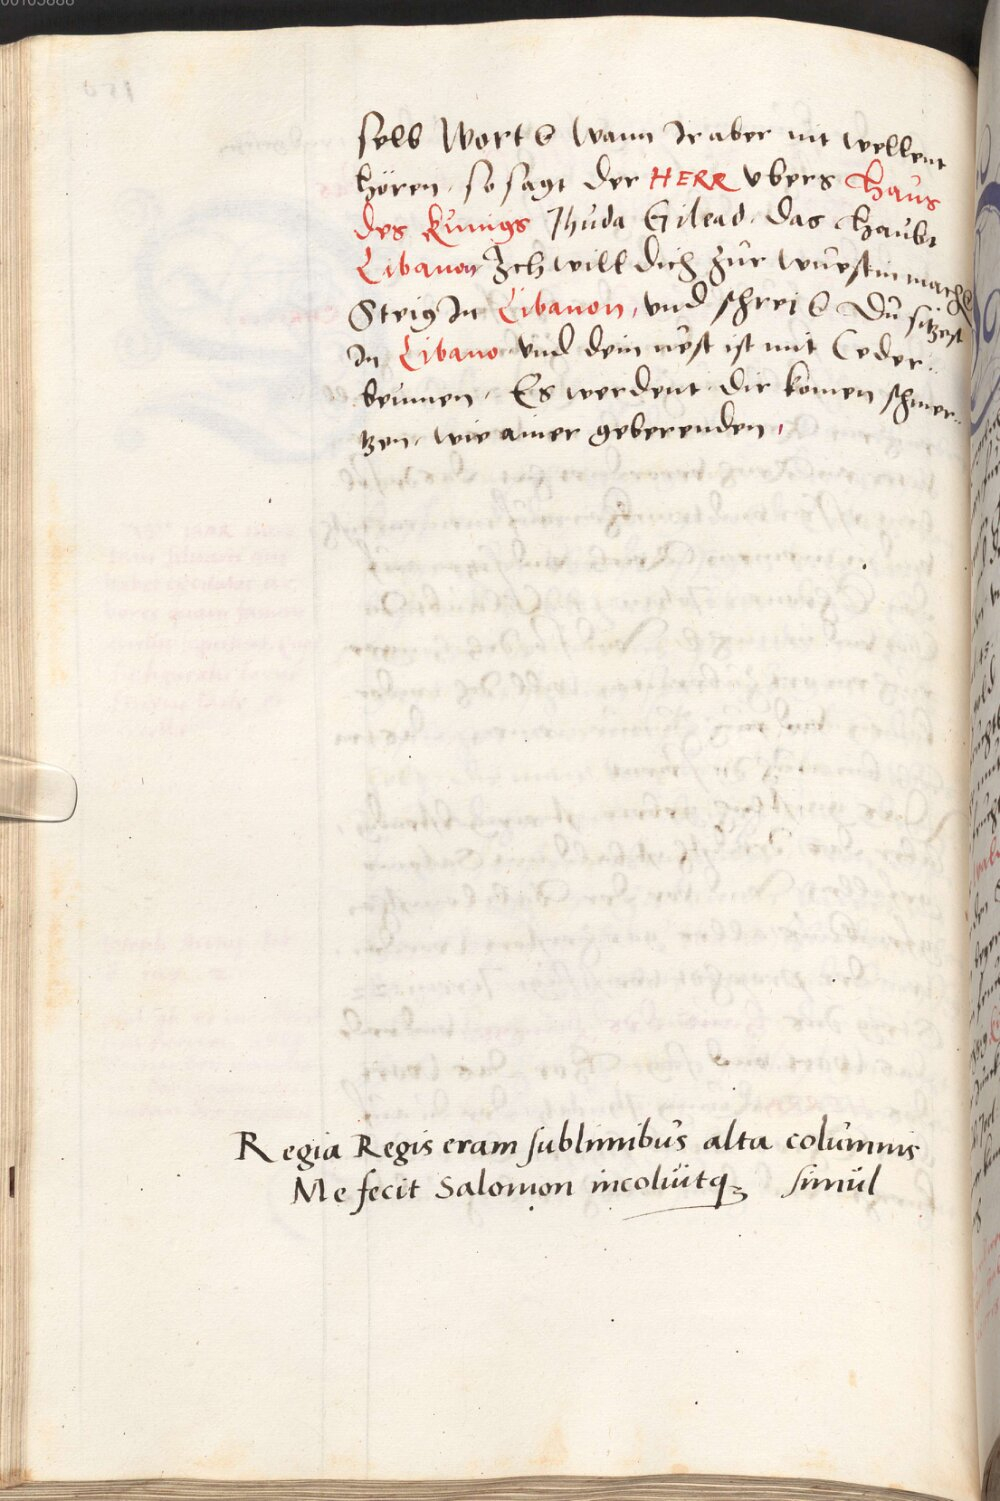 00103688
selb Wort ꝛc Wann Ir aber nit wellent
hören, so sagt der HERR vbers Haus
des Kunigs Jhuda Gilead, das Haubt
Libanon Ich will dich zur wuestin mach
Steig In Libanon, vnd schrei ꝛc Du sitzest
In Libano vnd dein nest ist mit Ceder..
beumen, Es werdent dir komen schmer..
tzen, wie ainer geberenden,
Regia Regis eram sublimibus alta columnis
Me fecit Salomon incoluitq simul